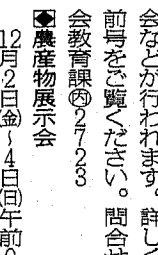 会などが行われます。詳しく
前号をご覧ください。問合せ
会教育課(内)2723
◆農産物展示会
12月2日㊎～4日㊐午前